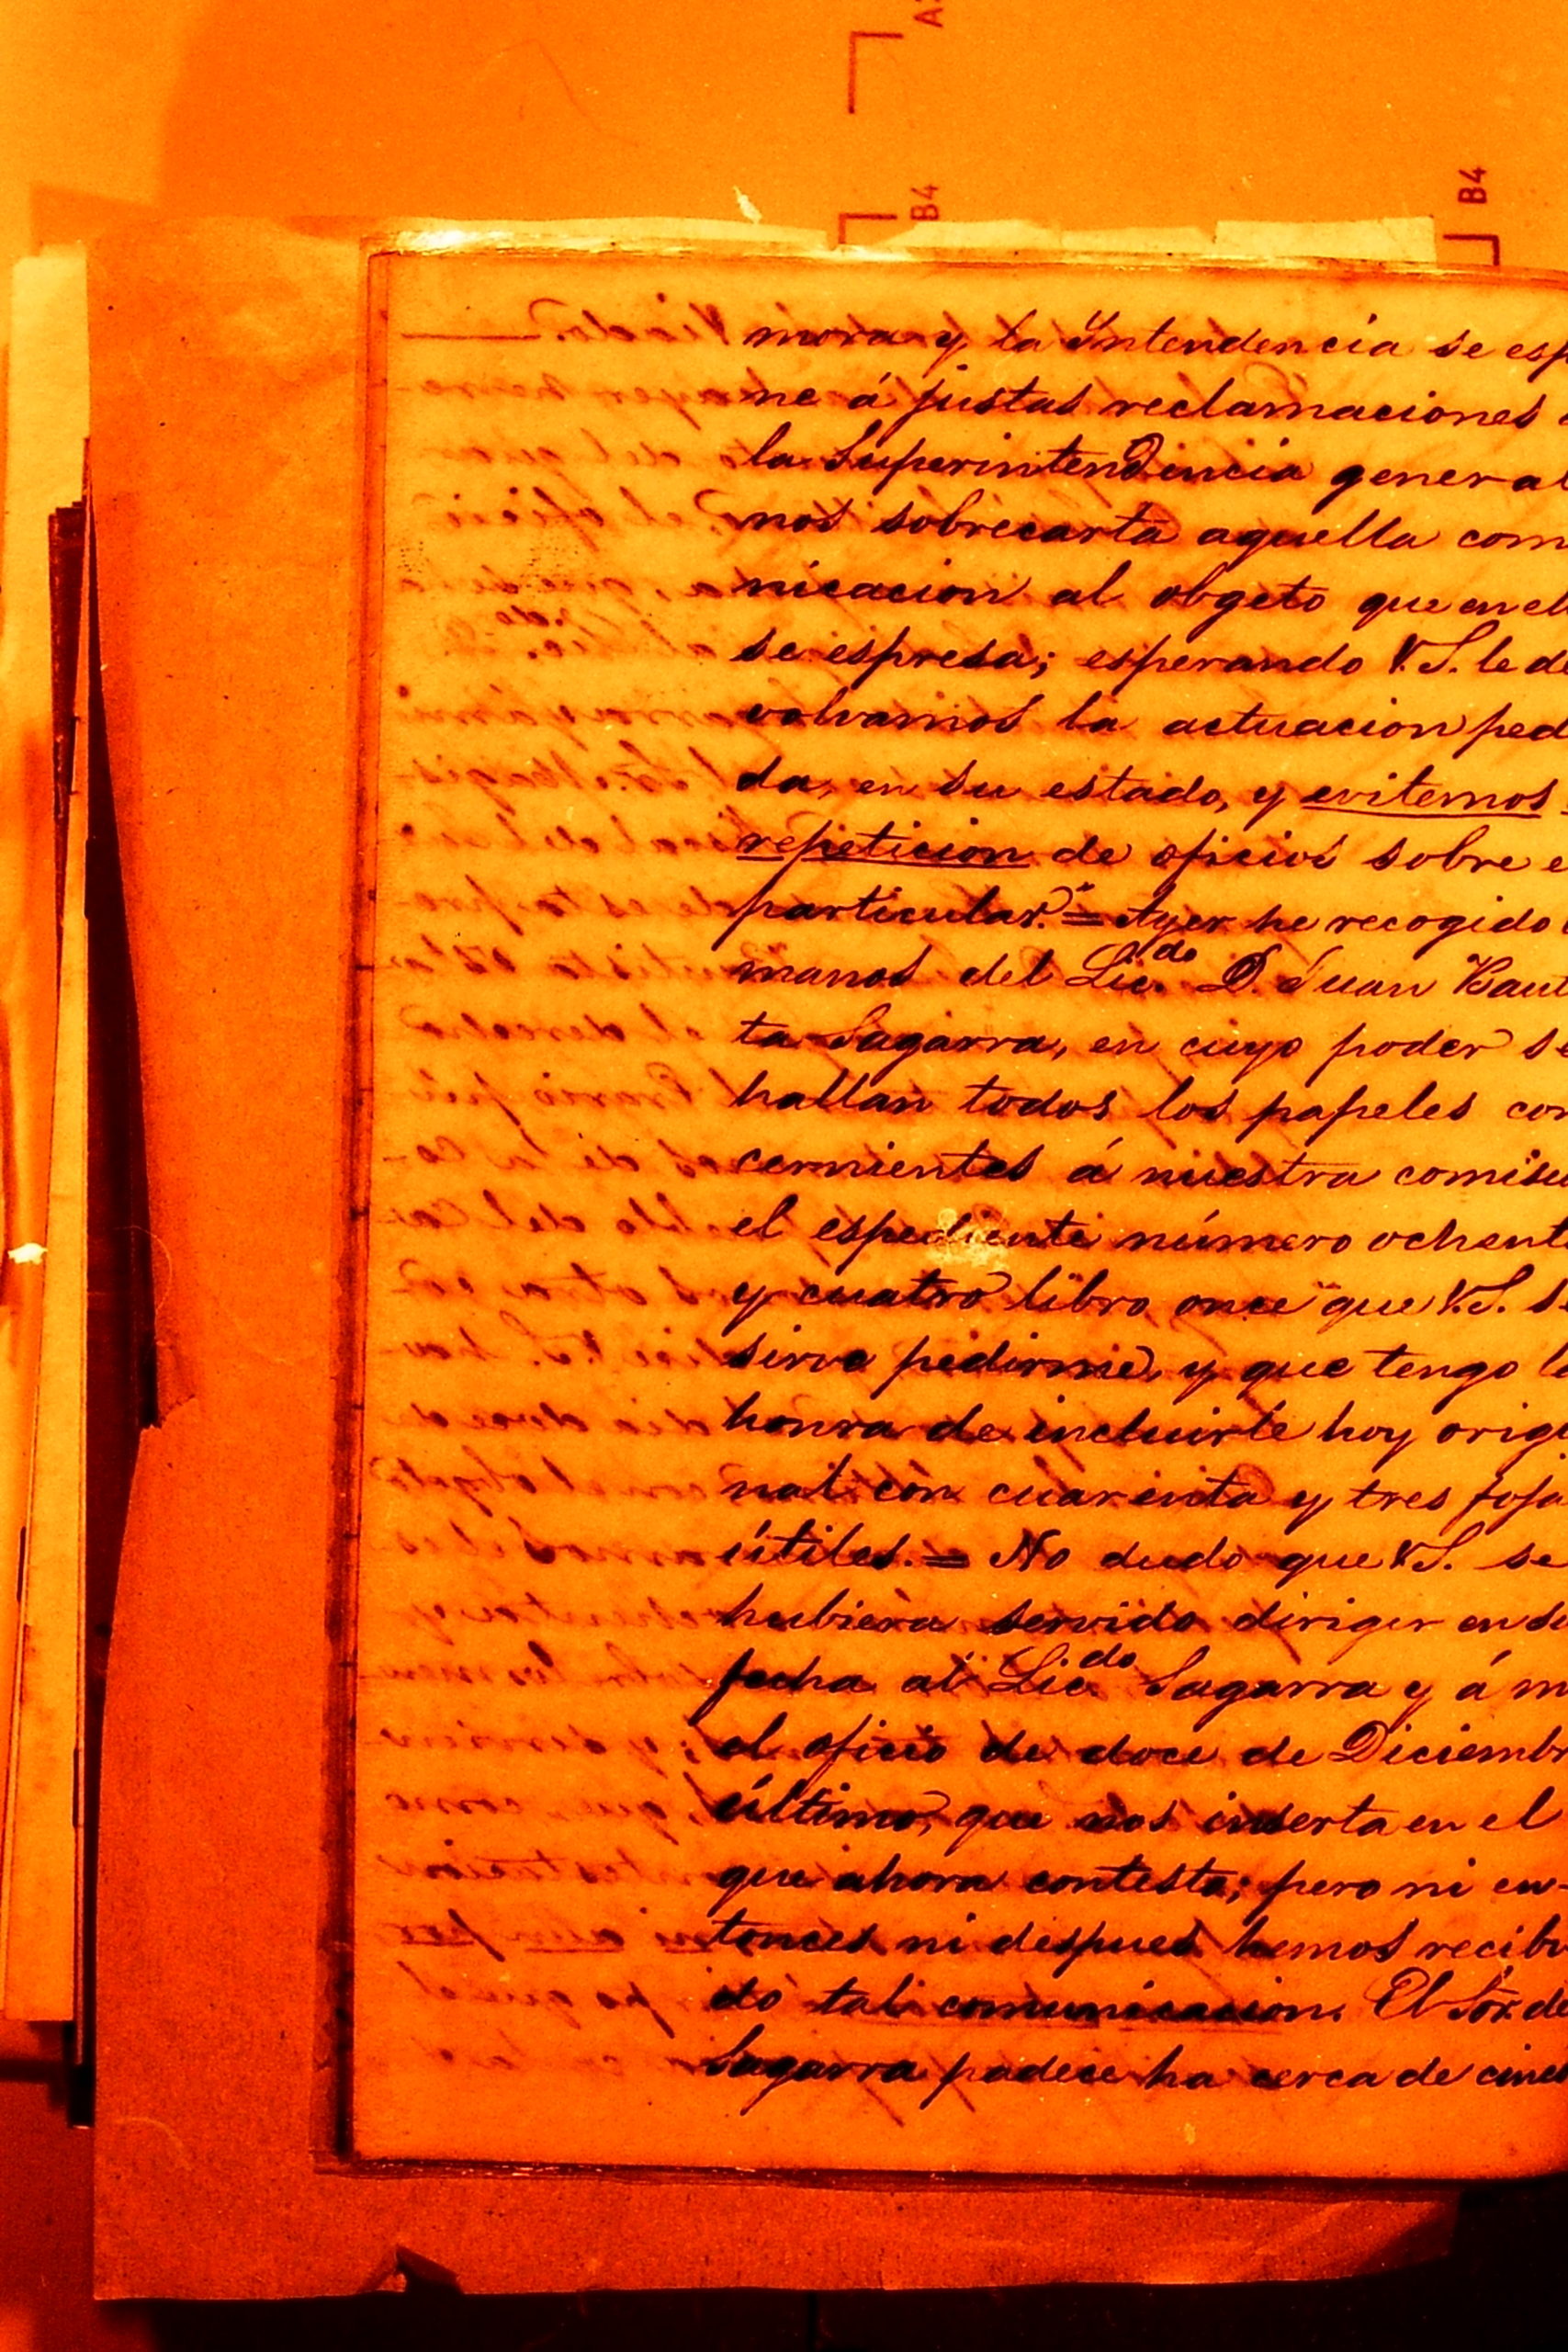 B4
B4
mora y la Yntendencia se esp
ne á justas reclamaciones
la Superintendencia general
nos sobrecarta aquella com
nicacion al obgeto que en el
se espresa; esperando V.S. le de
volvamos la actuacion ped
da, en su estado, y evitemos
repeticion de oficios sobre e
particular." = Ayer he recogido
manos del Lic.do D. Juan Baut
ta Sagarra, en cuyo poder se
hallan todos los papeles con
cernientes á nuestra comisi
el espediente número ochent
y cuatro libro once que V.S. s
sirve pedirme, y que tengo l
honra de incluirle hoy origi
nal con cuarenta y tres foja
útiles. = No dudo que V.S. se
hubiera servido dirigir en su
fecha al Lic.do Sagarra y á m
el oficio de doce de Diciembr
último, que nos inserta en el
que ahora contesto; pero ni en-
tonces ni despues hemos recibi
do tal comunicacion. El Sor. de
Sagarra padece ha cerca de cinc